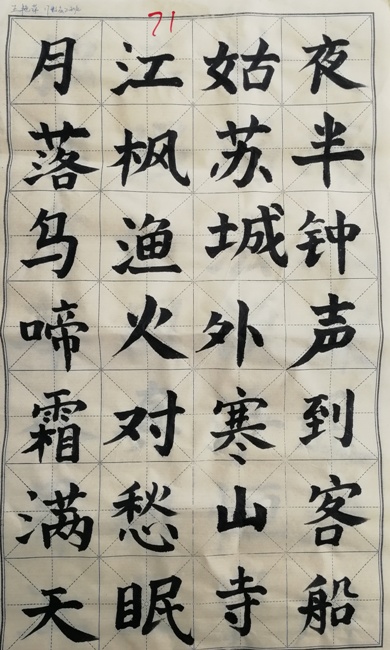 71
月落乌啼霜满天
江枫渔火对愁眠
姑苏城外寒山寺
夜半钟声到客船